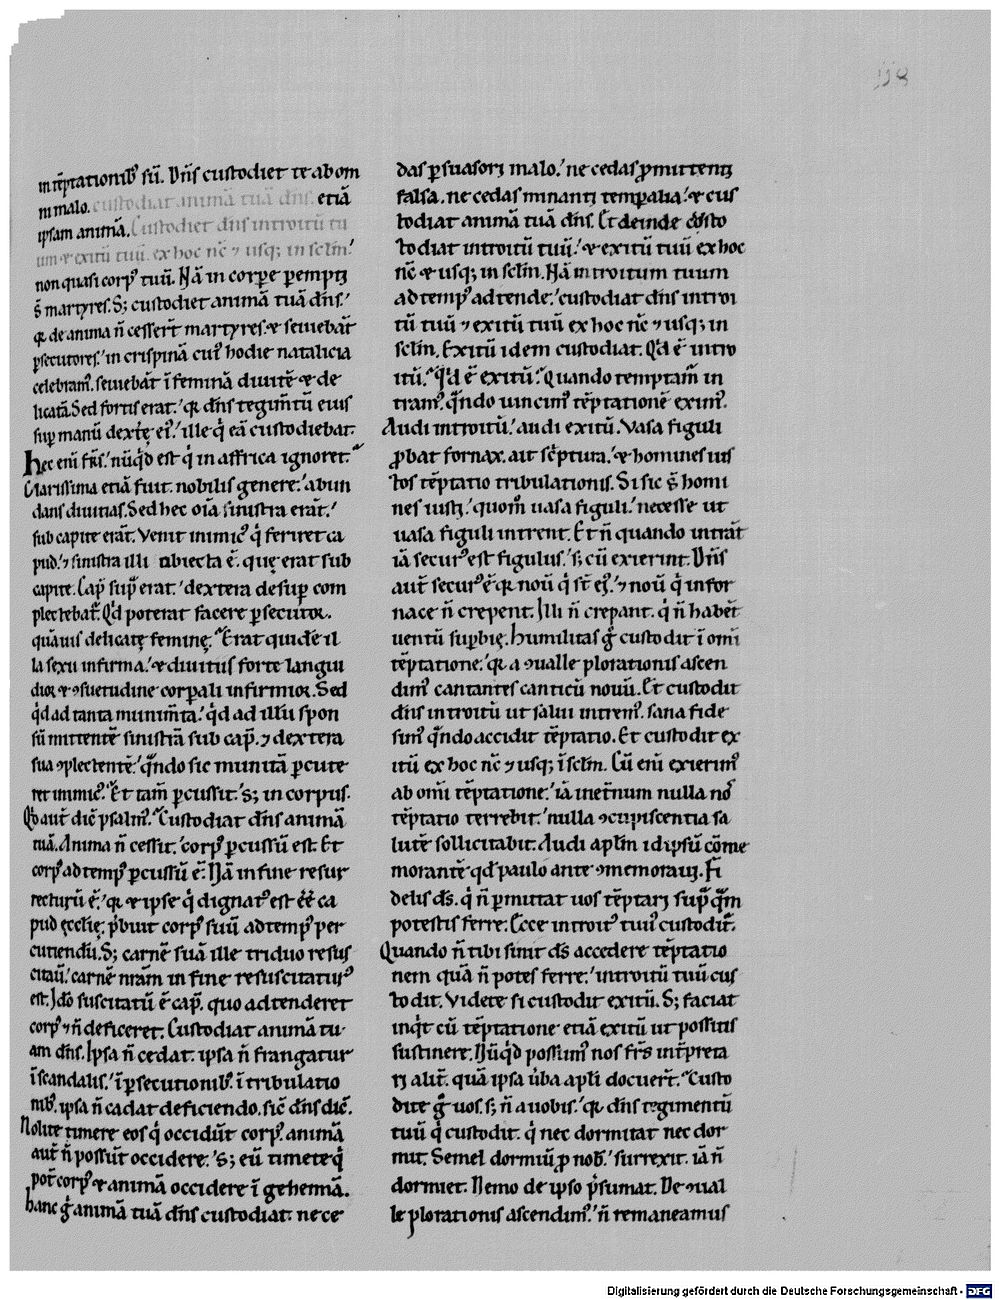 in tēptationib; sū. Dn̄s custodiet te ab om
ni malo. custodiat animā tuā dn̄s. etiā
ipsam animā. Custodiet dn̄s introitū tu
um ⁊ exitū tuū. ex hoc nc̄ ⁊ usq; in sclm̄.
non quasi corpꝰ tuū. Nā in corpe pempti
s̄ martyres. S; custodiet animā tuā dn̄s.
q̄ de anima n̄ cessert̄ martyres. ⁊ seuiebāt
ꝑsecutores. in crispinā cuiꝰ hodie natalicia
celebramꝰ. seuiebāt ī feminā diuitē ⁊ de
licatā Sed fortis erat. q̄ dn̄s tegimt̄ū eius
sup manū dextę eiꝰ. ille q̇ eā custodiebat.
Hec eni fr̄s. nūqd̄ est q̇ in affrica ignoret.
Clarissima etiā fuit. nobilis genere. abun
dans diuitiis. Sed hec oīa sinistra erāt.
sub capite erāt. Venit inimicꝰ q̇ feriret ca
pud. ⁊ sinistra illi obiecta ē. quę erat sub
capite. Cap̄ sup̄ erat. dextera desup com
plectebat̄. Qd̄ poterat facere ꝑsecutor.
quāuis delicatę feminę. Erat quidē il
la sexu infirma. ⁊ diuitiis forte langui
dior ⁊ ꝯsuetudine corpali infirmior. Sed
qd̄ ad tanta munim̄ta. qd̄ ad illū spon
sū mittentē sinistrā sub cap̄. ⁊ dextera
sua ꝯplectentē. qn̄do sic munitā ꝑcute
ret inimicꝰ. Et tam̄ ꝑcussit. s; in corpus.
Qd̄ aut̄ dic̄ psalmꝰ. Custodiat dn̄s animā
tuā. Anima n̄ cessit. corpꝰ ꝑcussū est. Et
corpꝰ ad tempꝰ ꝑcussū ē. Nā in fine resur
recturū ē. q̄ ⁊ ipse q̇ dignatꝰ est ēē ca
pud ęcclię. p̄buit corpꝰ suū ad tempꝰ per
cutiendū. S; carnē suā ille triduo resus
citau̅. carnē nr̄am in fine resuscitaturꝰ
est. Ido suscitatū ē cap̄. quo adtenderet
corpꝰ ⁊ n̄ deficeret. Custodiat animā tu
am dn̄s. Ipsa n̄ cedat. ipsa n̄ frangatur
ī scandalis. ī ꝑsecutionib;. ī tribulatio
nib;. ipsa n̄ cadat deficiendo. sic̄ dn̄s dic̄.
Nolite timere eos q̇ occidūt corpꝰ. animā
aut̄ n̄ possūt occidere. S; eū timete q̇
pot̄ corpꝰ ⁊ animā occidere ī gehennā.
hanc ġ animā tuā dn̄s custodiat. ne ce
das ꝑsuasori malo. ne cedas ꝓmittenti
falsa. ne cedas minanti tempalia. ⁊ cus
todiat animā tuā dn̄s. Et deinde custo
todiat introitū tuū. ⁊ exitū tuū ex hoc
nc̄ ⁊ usq; in sclm̄. Nā introitum tuum
ad tempꝰ adtende. custodiat dn̄s introi
tū tuū ⁊ exitū tuū ex hoc nc̄ ⁊ usq; in
sclm̄. Exitū idem custodiat. Qd̄ ē intro
itū. qd̄ ē exitū. Quando temptam̄ in
tramꝰ. qn̄do uincim̄ tēptationē eximꝰ.
Audi introitū. audi exitū. Vasa figuli
ꝓbat fornax. ait sc̄ptura. ⁊ homines ius
tos tēptatio tribulationis. Si sic s̄ homi
nes iusti. quom̄ uasa figuli. necesse ut
uasa figuli intrent. Et n̄ quando intrāt
iā securꝰ est figulus. s; cū exierint. Dn̄s
aut̄ securꝰ ē q̄ nou̅ q̇ st̄ eiꝰ. ⁊ nou̅ q̇ in for
nace n̄ crepent. Illi n̄ crepant. q̇ n̄ habēt
uentū supbię. Humilitas ġ custodit ī omi
tēptatione. q̄ a ꝯualle plorationis ascen
dimꝰ cantantes canticū nouū. Et custodit
dn̄s introitū ut salui intremꝰ. sana fide
simꝰ qn̄do accidit tēptatio. Et custodit ex
itū ex hoc nc̄ ⁊ usq; ī sclm̄. Cū eni exierimꝰ
ab omi tēptatione. iā inet̄num nulla nos
tēptatio terrebit. nulla ꝯcupiscentia sa
lutē sollicitabit. Audi aplm̄ id ipsū cōme
morantē qd̄ paulo ante ꝯmemoraui. Fi
delis ds̄. q̇ n̄ ꝑmittat uos tēptari sup̄ qm̄
potestis ferre. Ecce introitꝰ tuuꝰ custodit̄.
Quando n̄ tibi sinit ds̄ accedere tēptatio
nem quā n̄ potes ferre. introitū tuū cus
todit. Videte si custodit exitū. S; faciat
inqt̄ cū tēptatione etiā exitū ut possitis
sustinere. Nūqd̄ possumꝰ nos fr̄s int̄preta
ri alit̄. quā ipsa u̅ba apli docuert̄. Custo
dite ġ uos. s; n̄ a uobis. q̄ dn̄s tegimentū
tuū q̇ custodit. q̇ nec dormitat nec dor
mit. Semel dormiu̅ ꝓ nob̄. surrexit. iā n̄
dormiet. Nemo de ipso p̄sumat. De ꝯual
le plorationis ascendimꝰ. n̄ remaneamus
Digitalisierung gefördert durch die Deutsche Forschungsgemeinschaft - DFG